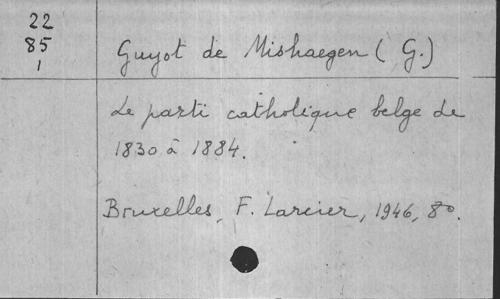 22
85
1
Guyot de Mishaegen (G.)
Le parti catholique belge de
1830 à 1884.
Bruxelles, F. Larcier, 1946, 8º.